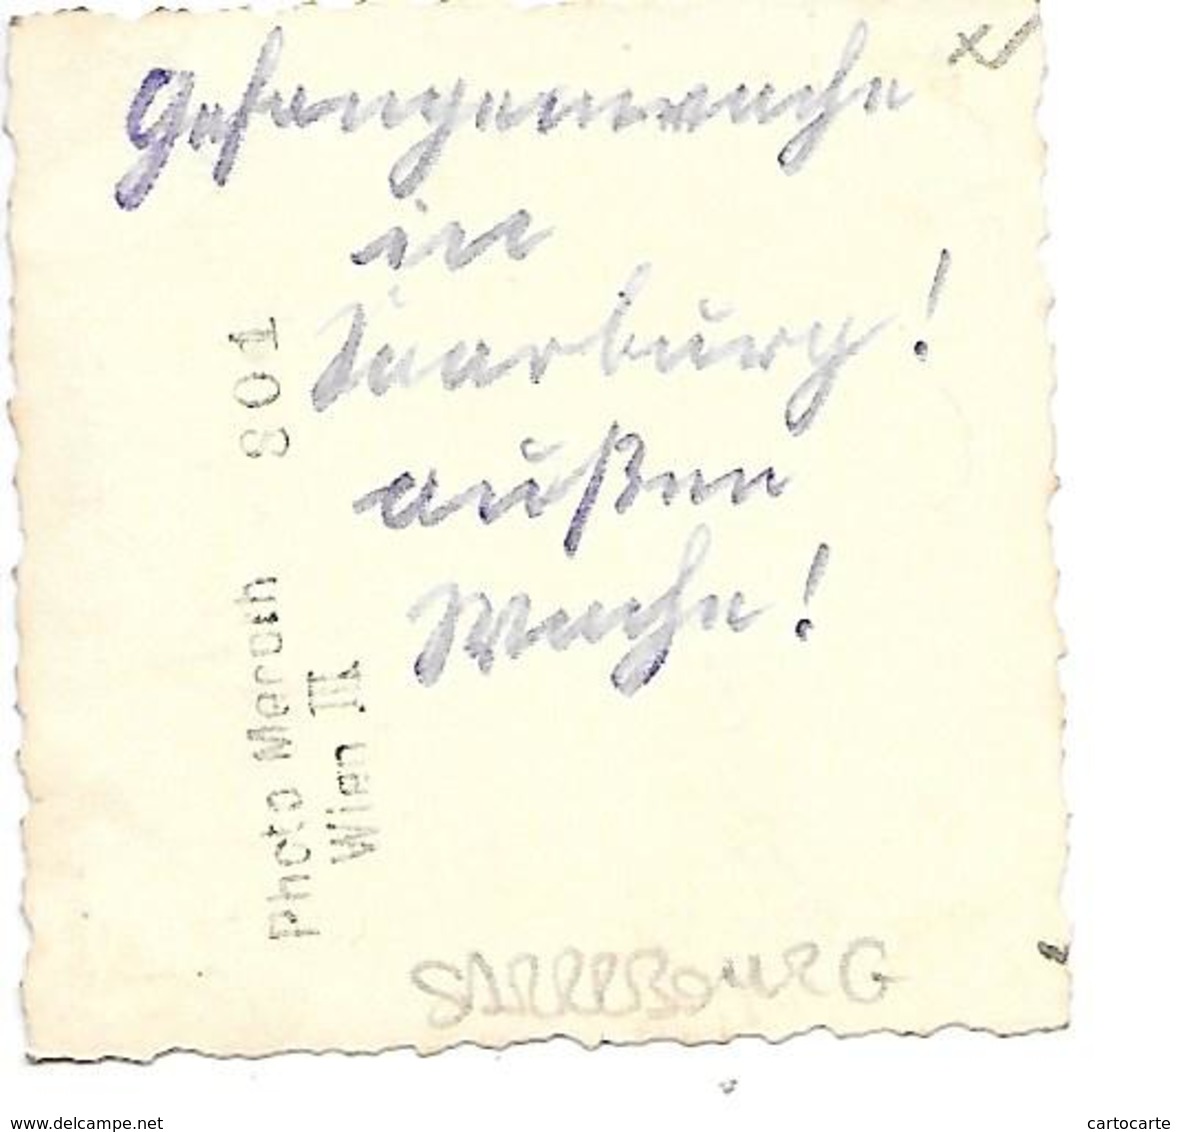 Gefangenenwache
in
Saarburg!
außen
Wache!
801
Photo
Wien III
SARREBOURG
www.delcampe.net
cartocarte